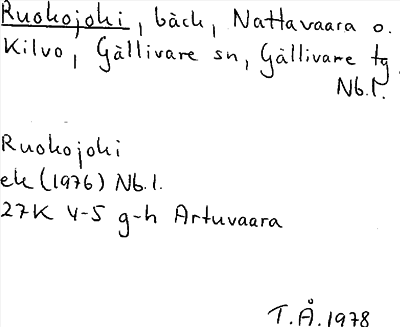 Ruokojoki, bäck, Nattavaara o.
Kilvo, Gällivare sn, Gällivare tg
Nb.l.
Ruokojoki
ek (1976) Nb.l.
27K 4-5 g-h Artuvaara
T.Å.1978